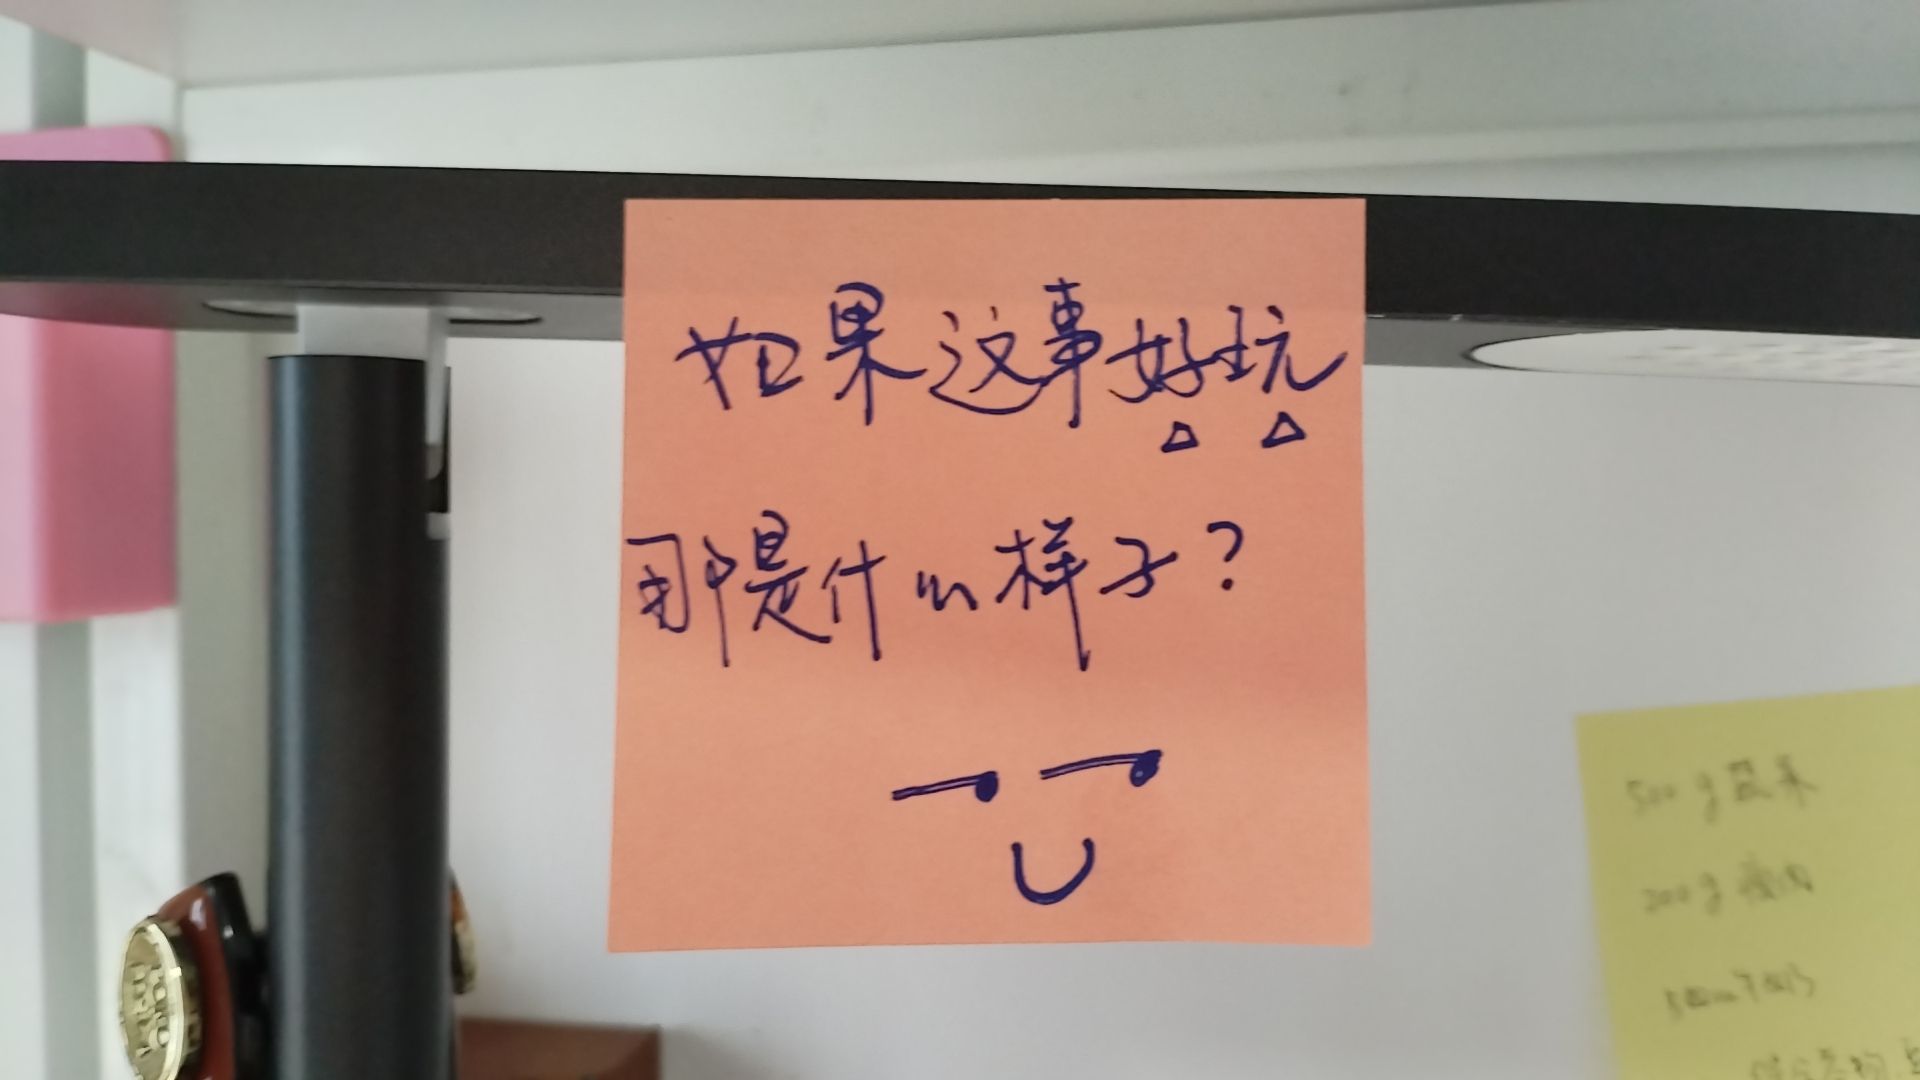 如果这事好玩
那是什么样子?
500g蔬果
200g瘦肉